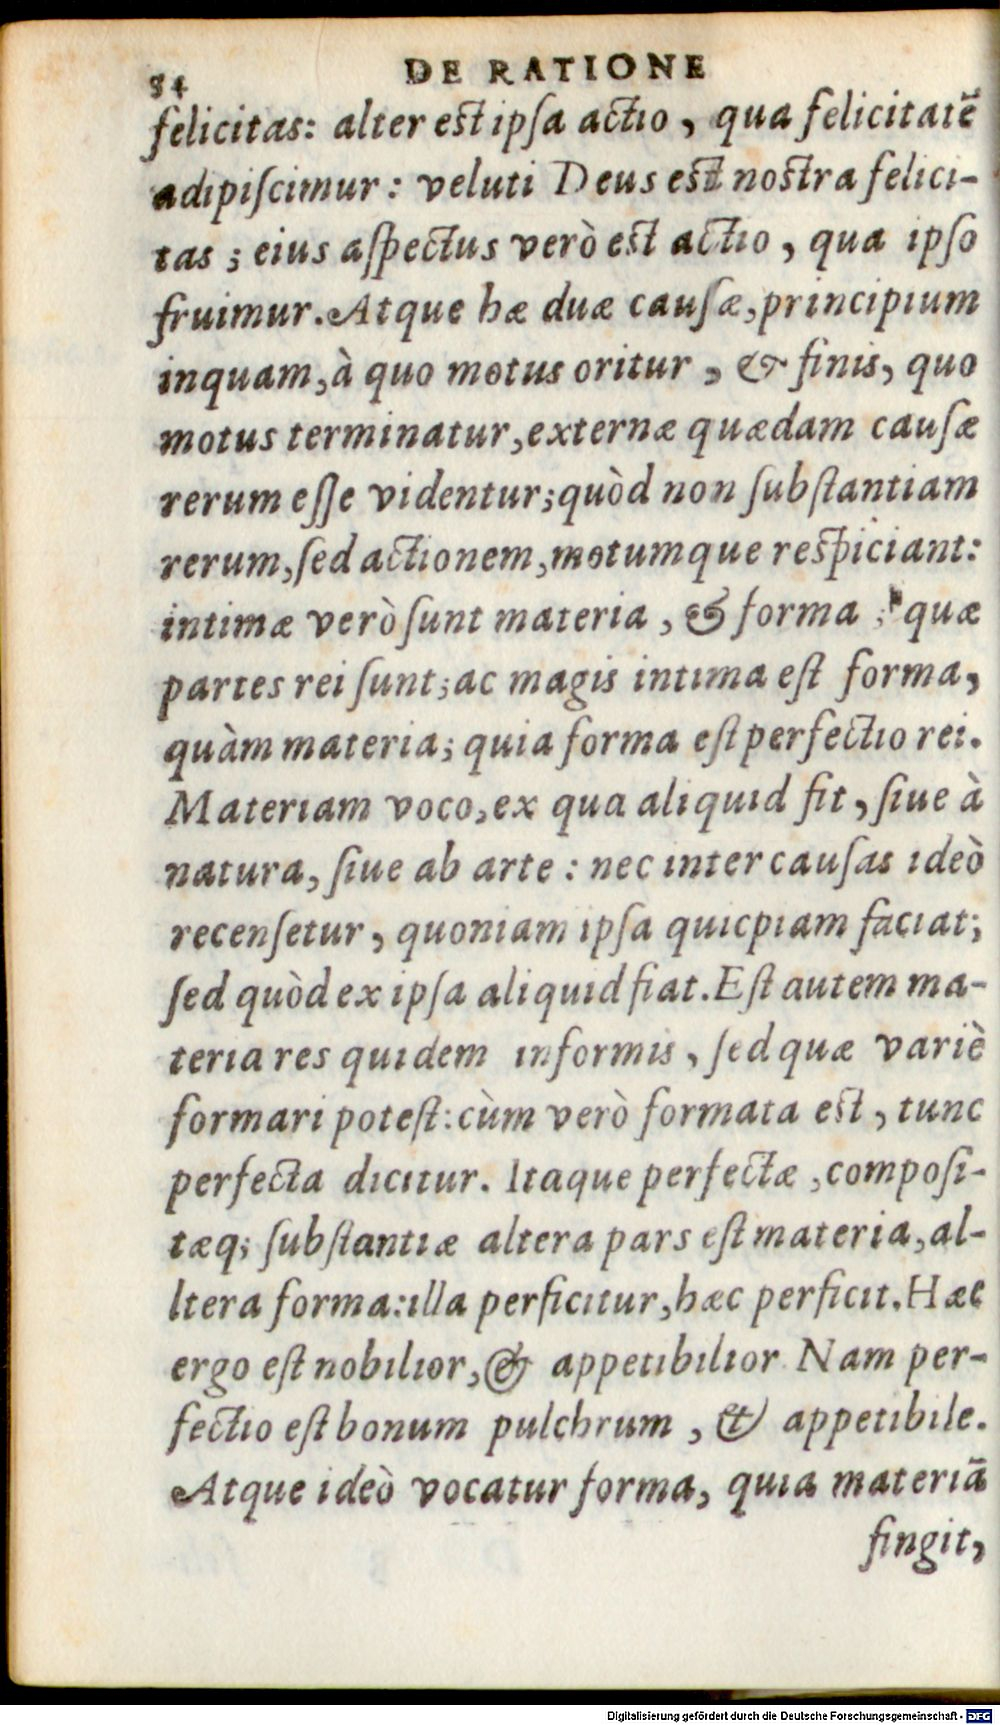 84
DE RATIONE
felicitas: alter est ipſa actio, qua felicitatē
adipiſcimur: veluti Deus est nostra felici-
tas; eius aſpectus verò est actio, qua ipſo
fruimur. Atque hæ duæ cauſæ, principium
inquam, à quo motus oritur, & finis, quo
motus terminatur, externæ quædam cauſæ
rerum eſſe videntur; quòd non ſubſtantiam
rerum, ſed actionem, motumque respiciant:
intimæ verò ſunt materia, & forma; quæ
partes rei ſunt; ac magis intima eſt forma,
quàm materia; quia forma eſt perfectio rei.
Materiam voco, ex qua aliquid fit, ſiue à
natura, ſiue ab arte: nec inter cauſas ideò
recenſetur, quoniam ipſa quicpiam faciat;
ſed quòd ex ipſa aliquid fiat. Eſt autem ma-
teria res quidem informis, ſed quæ variè
formari poteſt: cùm verò formata est, tunc
perfecta dicitur. Itaque perfectæ, compoſi-
tæq; ſubſtantiæ altera pars eſt materia, al-
ltera forma: illa perficitur, hæc perficit. Hæc
ergo eſt nobilior, & appetibilior. Nam per-
fectio eſt bonum pulchrum, & appetibile.
Atque ideò vocatur forma, quia materiā
fingit,
Digitalisierung gefördert durch die Deutsche Forschungsgemeinschaft - DFG